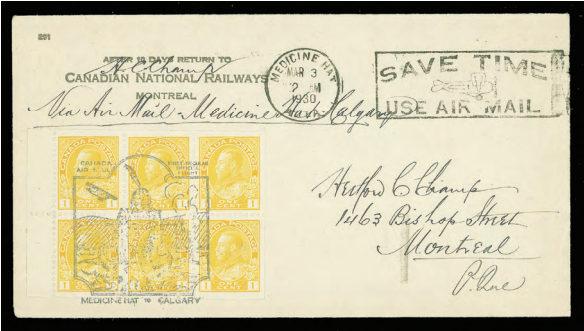 291
AFTER 10 DAYS RETURN TO
CANADIAN NATIONAL RAILWAYS
MONTREAL
MEDICINE HAT
MAR 3
2 PM
1930
ALTA.
SAVE TIME
USE AIR MAIL
Via Air Mail - Medicine Hat - Calgary
CANADA POSTAGE
CANADA
AIR MAIL
FIRST REGULAR
OFFICIAL
FLIGHT
1 ONE CENT 1
MEDICINE HAT TO CALGARY
Hedford C Champ
1463 Bishop Street
Montreal
P. Que